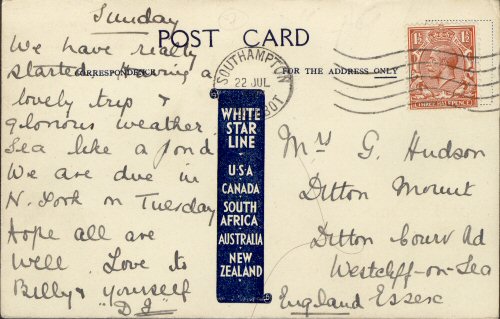 Sunday
POST CARD
CORRESPONDENCE
FOR THE ADDRESS ONLY
We have really
started. Having a
lovely trip &
glorious weather.
Sea like a pond
We are due in
N. York on Tuesday
Hope all are
well. Love to
Billy & yourself
"D J"
SOUTHAMPTON
22 JUL
1½ 1½
THREE HALFPENCE
WHITE
STAR
LINE
USA
CANADA
SOUTH
AFRICA
AUSTRALIA
NEW
ZEALAND
Mrs G. Hudson
Ditton Mount
Ditton Court Rd
Westcliff-on-Sea
England Essex